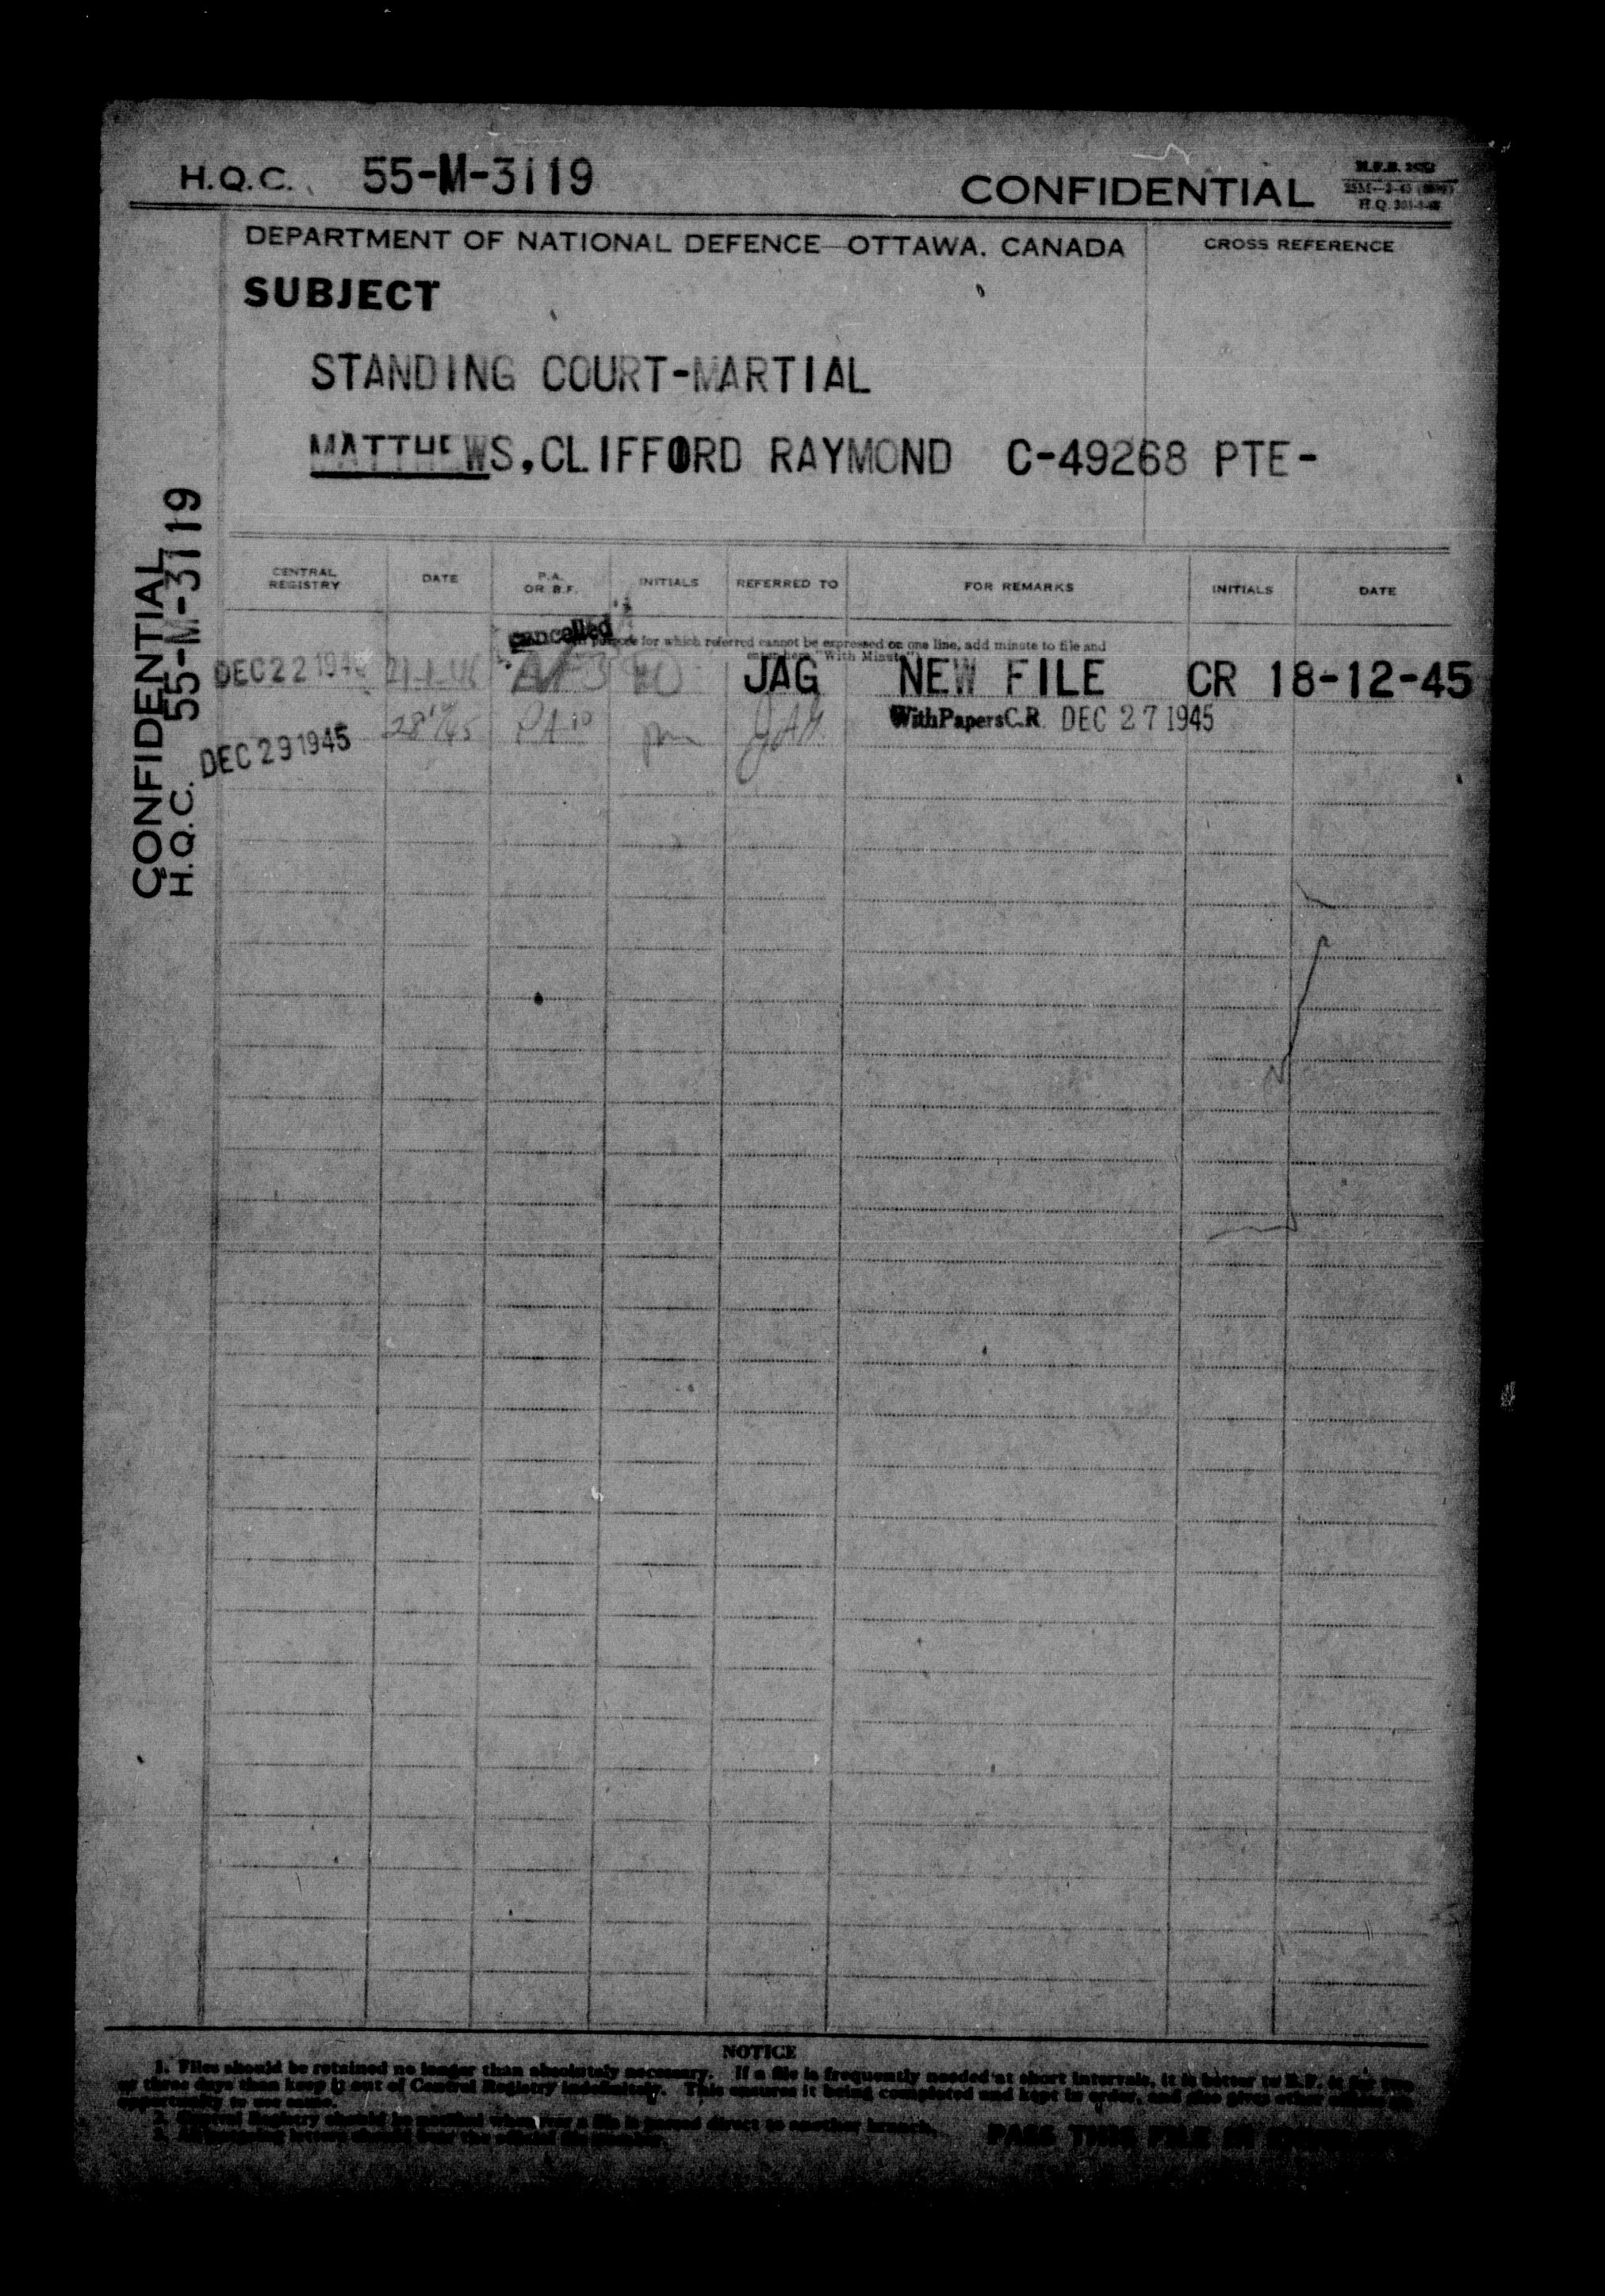 H.Q.C. 55-M-3119
CONFIDENTIAL
DEPARTMENT OF NATIONAL DEFENCE—OTTAWA, CANADA
CROSS REFERENCE
SUBJECT
STANDING COURT-MARTIAL
MATTHEWS,CLIFFORD RAYMOND C-49268 PTE-
CONFIDENTIAL
H.Q.C. 55-M-3119
CENTRAL REGISTRY DATE P.A. OR B.F. INITIALS REFERRED TO FOR REMARKS INITIALS DATE
cancelled
purpose for which referred cannot be expressed on one line, add minute to file and
enter here "With Minute"
DEC 22 1945 JAG NEW FILE CR 18-12-45
PA JAG With Papers C.R. DEC 27 1945
DEC 29 1945
NOTICE
1. Files should be retained no longer than absolutely necessary. If a file is frequently needed at short intervals, it is better to B.F. it for two
or three days than keep it out of Central Registry indefinitely. This ensures it being completed and kept in order, and also gives other
opportunity to
2. Central Registry should be notified when a file is passed direct to another branch.
PASS THIS FILE IN